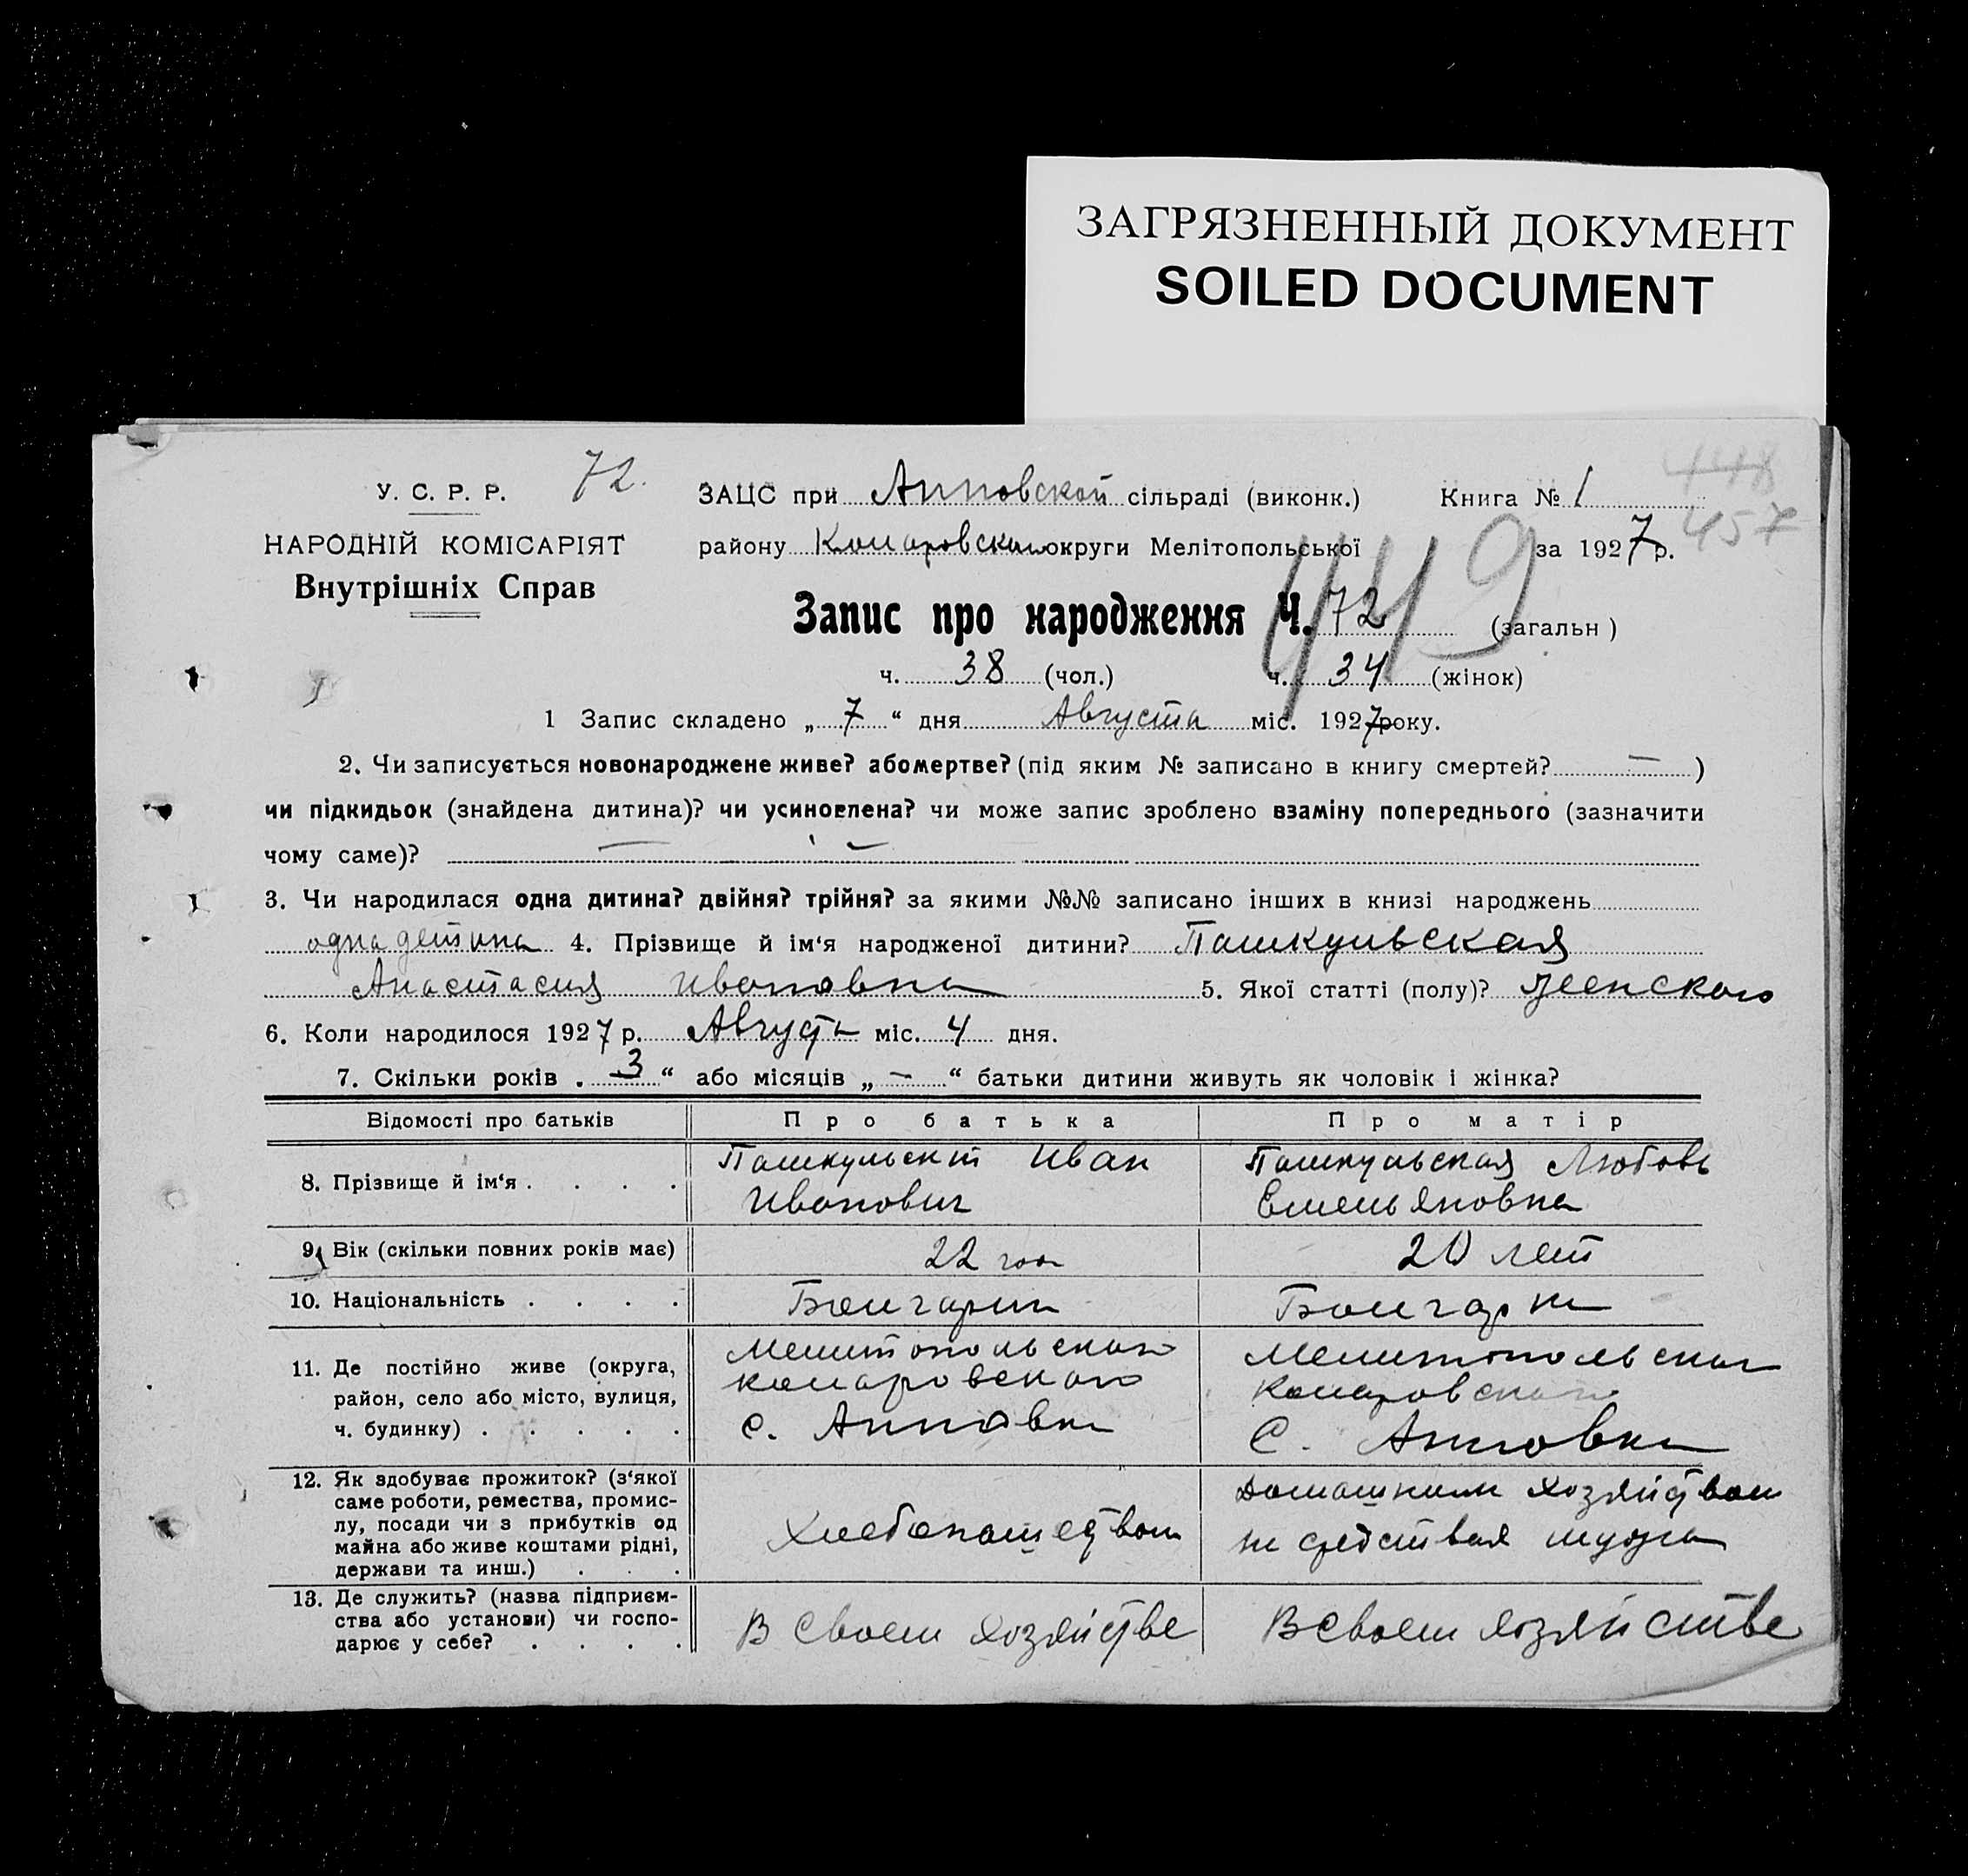 ЗАГРЯЗНЕННЫЙ ДОКУМЕНТ
SOILED DOCUMENT
448
457
У. С. Р. Р. 72. ЗАЦС при Анновской сільраді (виконк.) Книга № 1
НАРОДНІЙ КОМІСАРІЯТ району Комаровском округи Мелітопольської за 1927 р.
Внутрішніх Справ
449
Запис про народження Ч. 72 (загальн )
ч. 38 (чол.) ч. 34 (жінок)
1 Запис складено „ 7 “ дня Августа міс. 1927 року.
2. Чи записується новонароджене живе? або мертве? (під яким № записано в книгу смертей? — )
чи підкидьок (знайдена дитина)? чи усиновлена? чи може запис зроблено взаміну попереднього (зазначити
чому саме)? — —
3. Чи народилася одна дитина? двійня? трійня? за якими №№ записано інших в книзі народжень
одна детина 4. Прізвище й ім‘я народженої дитини? Пашкульская
Анастасия Ивановна 5. Якої статті (полу)? женского
6. Коли народилося 1927 р. Августа міс. 4 дня.
7. Скільки років „ 3 “ або місяців „ — “ батьки дитини живуть як чоловік і жінка?
Відомості про батьків Про батька Про матір
8. Прізвище й ім‘я . . . . Пашкульский Иван Пашкульская Любовь
Иванович Емельяновна
9. Вік (скільки повних років має) 22 года 20 лет
10. Національність . . . . Болгарин Болгарка
11. Де постійно живе (округа, Мелитопольского Мелитопольского
район, село або місто, вулиця, комаровского комаровского
ч. будинку) . . . . . с. Анновка с. Анновка
12. Як здобуває прожиток? (з‘якої Домашним хозяйством
саме роботи, ремества, промис-
лу, посади чи з прибутків од Хлебопашеством на средствах мужа
майна або живе коштами рідні,
держави та инш.) . . .
13. Де служить? (назва підприєм- В своем хозяйстве В своем хозяйстве
ства або установи) чи госпо-
дарює у себе? . . . .